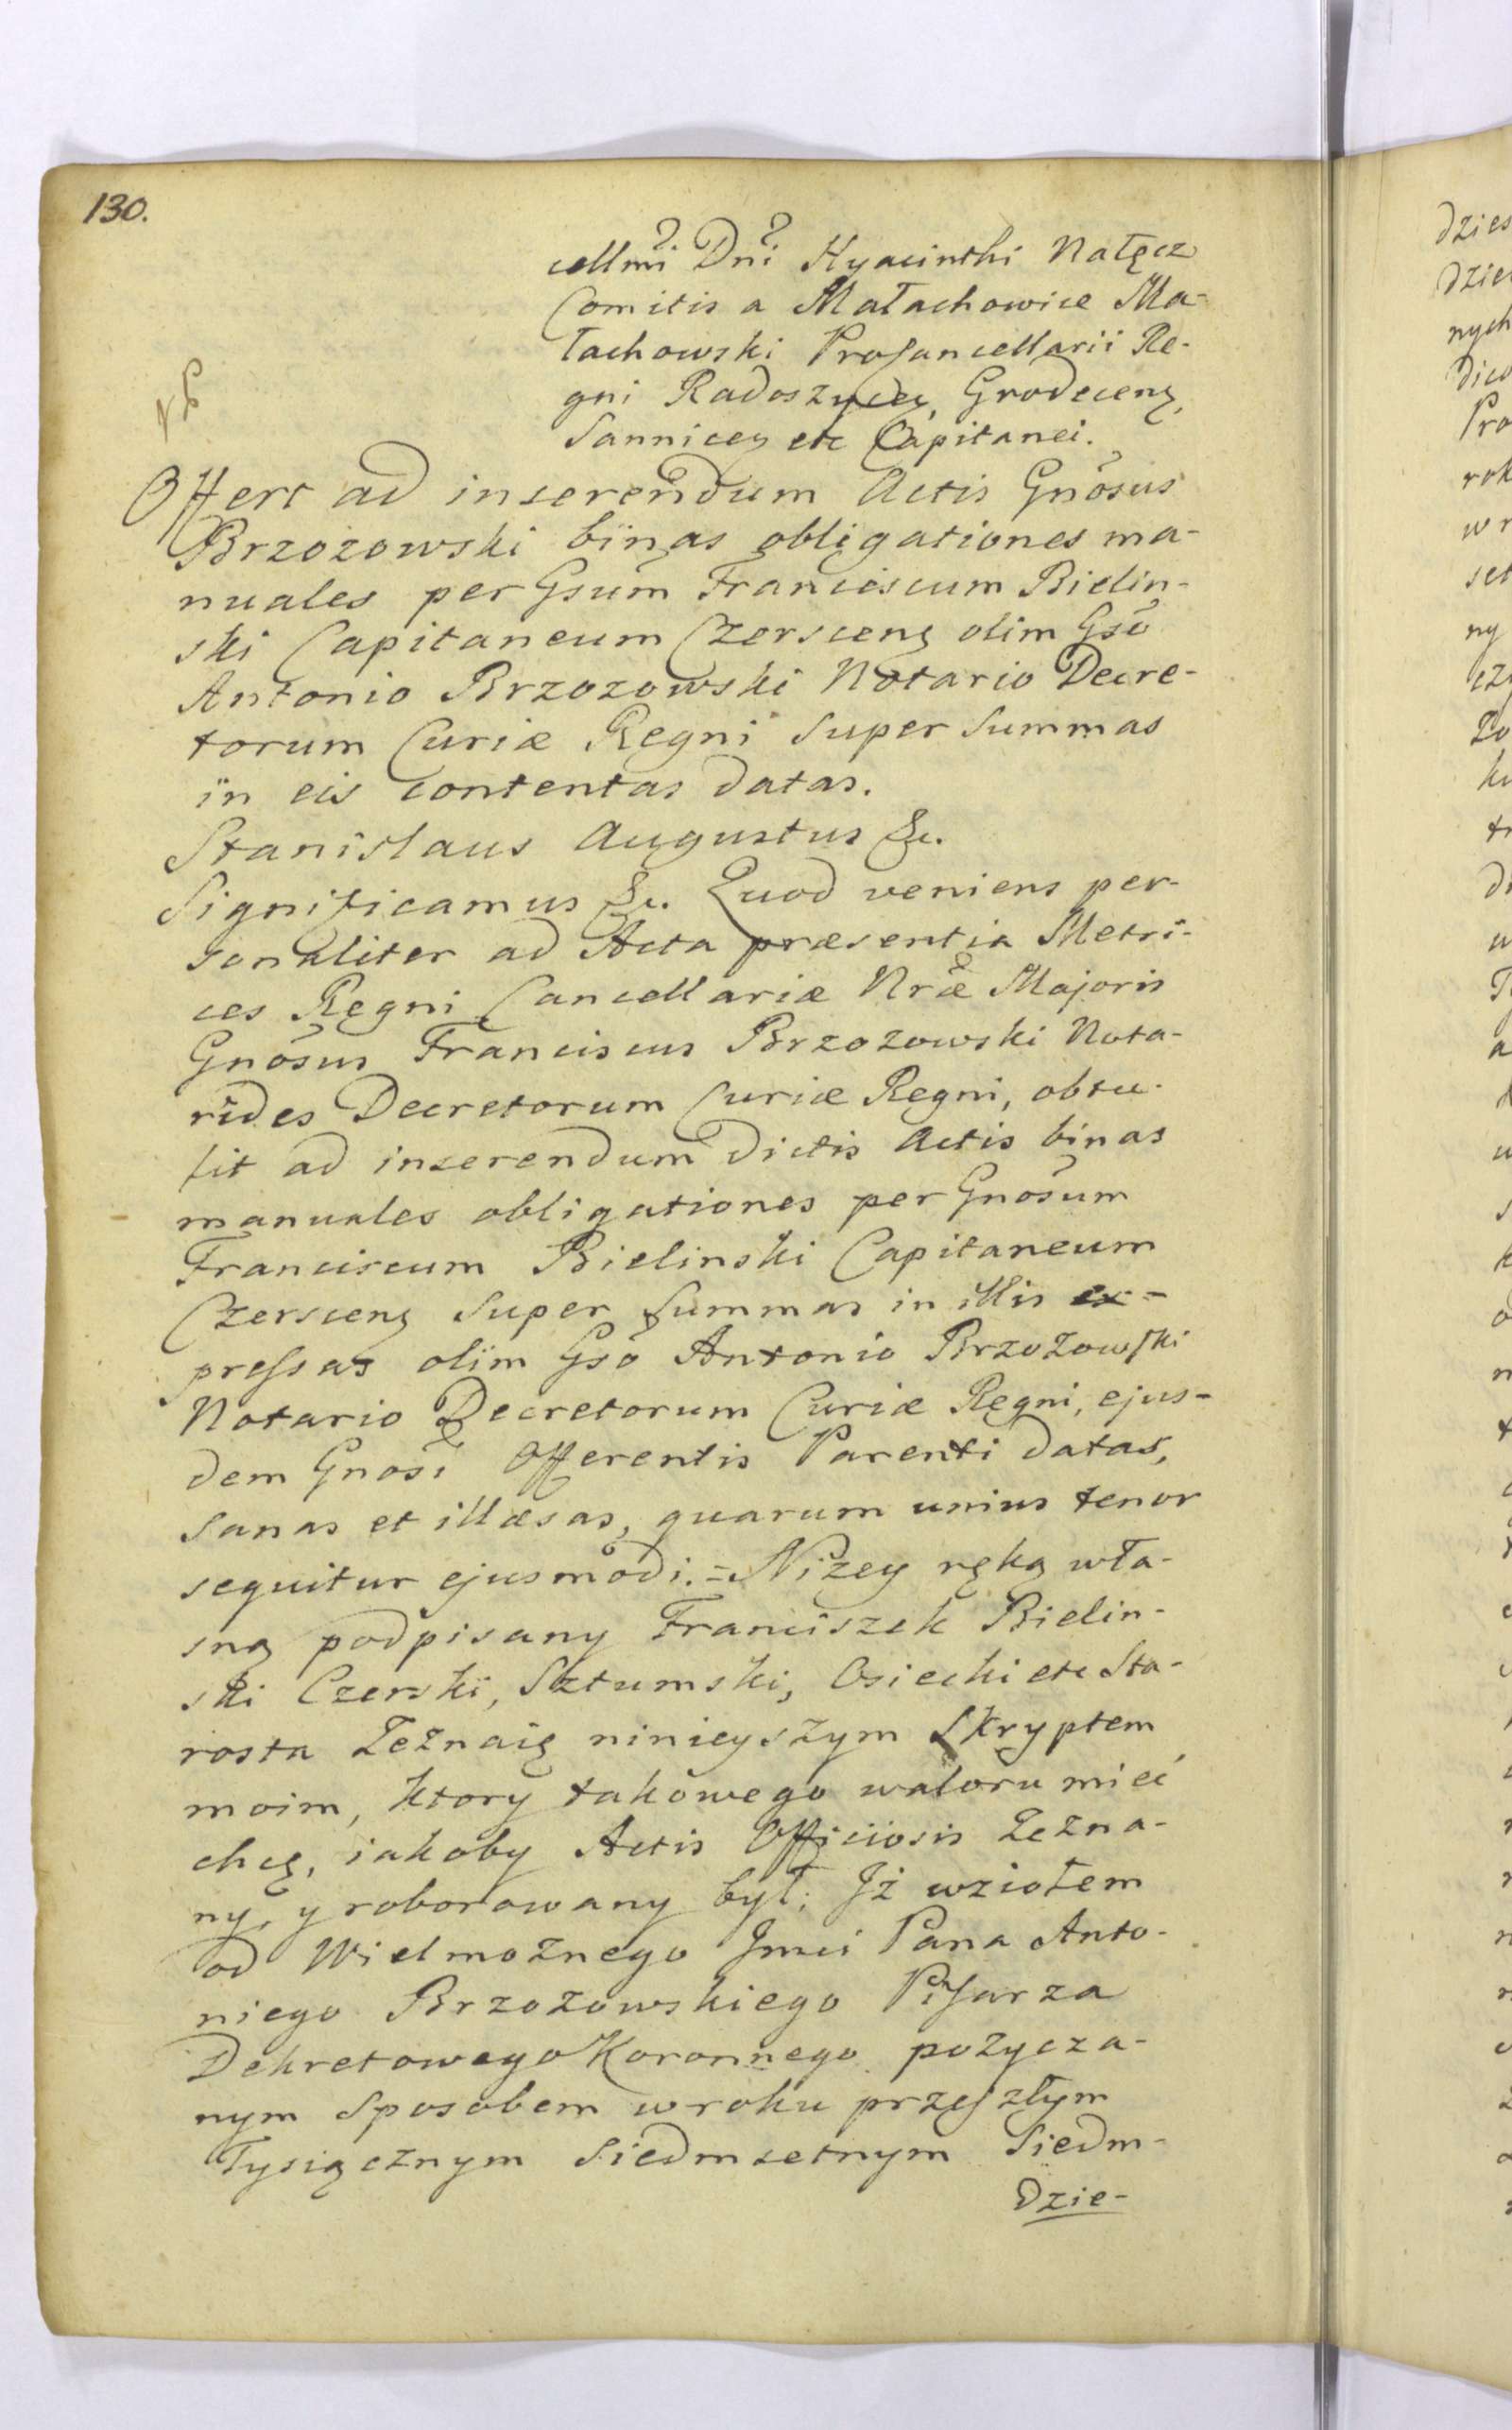 130.
cellm̃i Dñi Hyacinthi Nałęcz
Comitis a Małachowice Ma-
łachowski ProCancellarii Re-
gni Radoszycen, Grodecens,
Sannicen etc Capitanei.
NB
Offert ad inserendum Actis Gnõsus
Brzozowski binas obligationes ma-
nuales per Gsũm Franciscum Bielin-
ski Capitaneum Czerscens olim Gsõ
Antonio Brzozowski Notario Decre-
torum Curiæ Regni super Summas
in eis contentas datas.
Stanislaus Augustus &c.
Significamus &c. Quod veniens per-
sonaliter ad Acta præsentia Metri-
ces Regni Cancellariæ Nræ̃ Majoris
Gnõsus Franciscus Brzozowski Nota-
rides Decretorum Curiæ Regni, obtu-
lit ad inserendum dictis Actis binas
manuales obligationes per Gnosũm
Franciscum Bielinski Capitaneum
Czerscens super Summas in illis ex-
pressas olim Gsõ Antonio Brzozowski
Notario Decretorum Curiæ Regni, ejus-
dem Gnosĩ Offerentis Parenti datas,
sanas et illæsas, quarum unius tenor
sequitur ejusmodi.= Niżey ręką wła-
sną podpisany Franciszek Bielin-
ski Czerski, Sztumski, Osiecki etc Sta-
rosta Zeznaię ninieyszym Skryptem
moim, ktory takowego waloru mieć
chcę, iakoby Actis Officiosis Zezna-
ny, y roborowany był; Iż wziołem
od Wielmożnego Jmci Pana Anto-
niego Brzozowskiego Pisarza
Dekretowego Koronnego pożycza-
nym sposobem w roku przeszłym
Tysiącznym Siedmsetnym Siedm-
dzie-
dzies
dzie
nych
Pro
rok
w r
set
ny